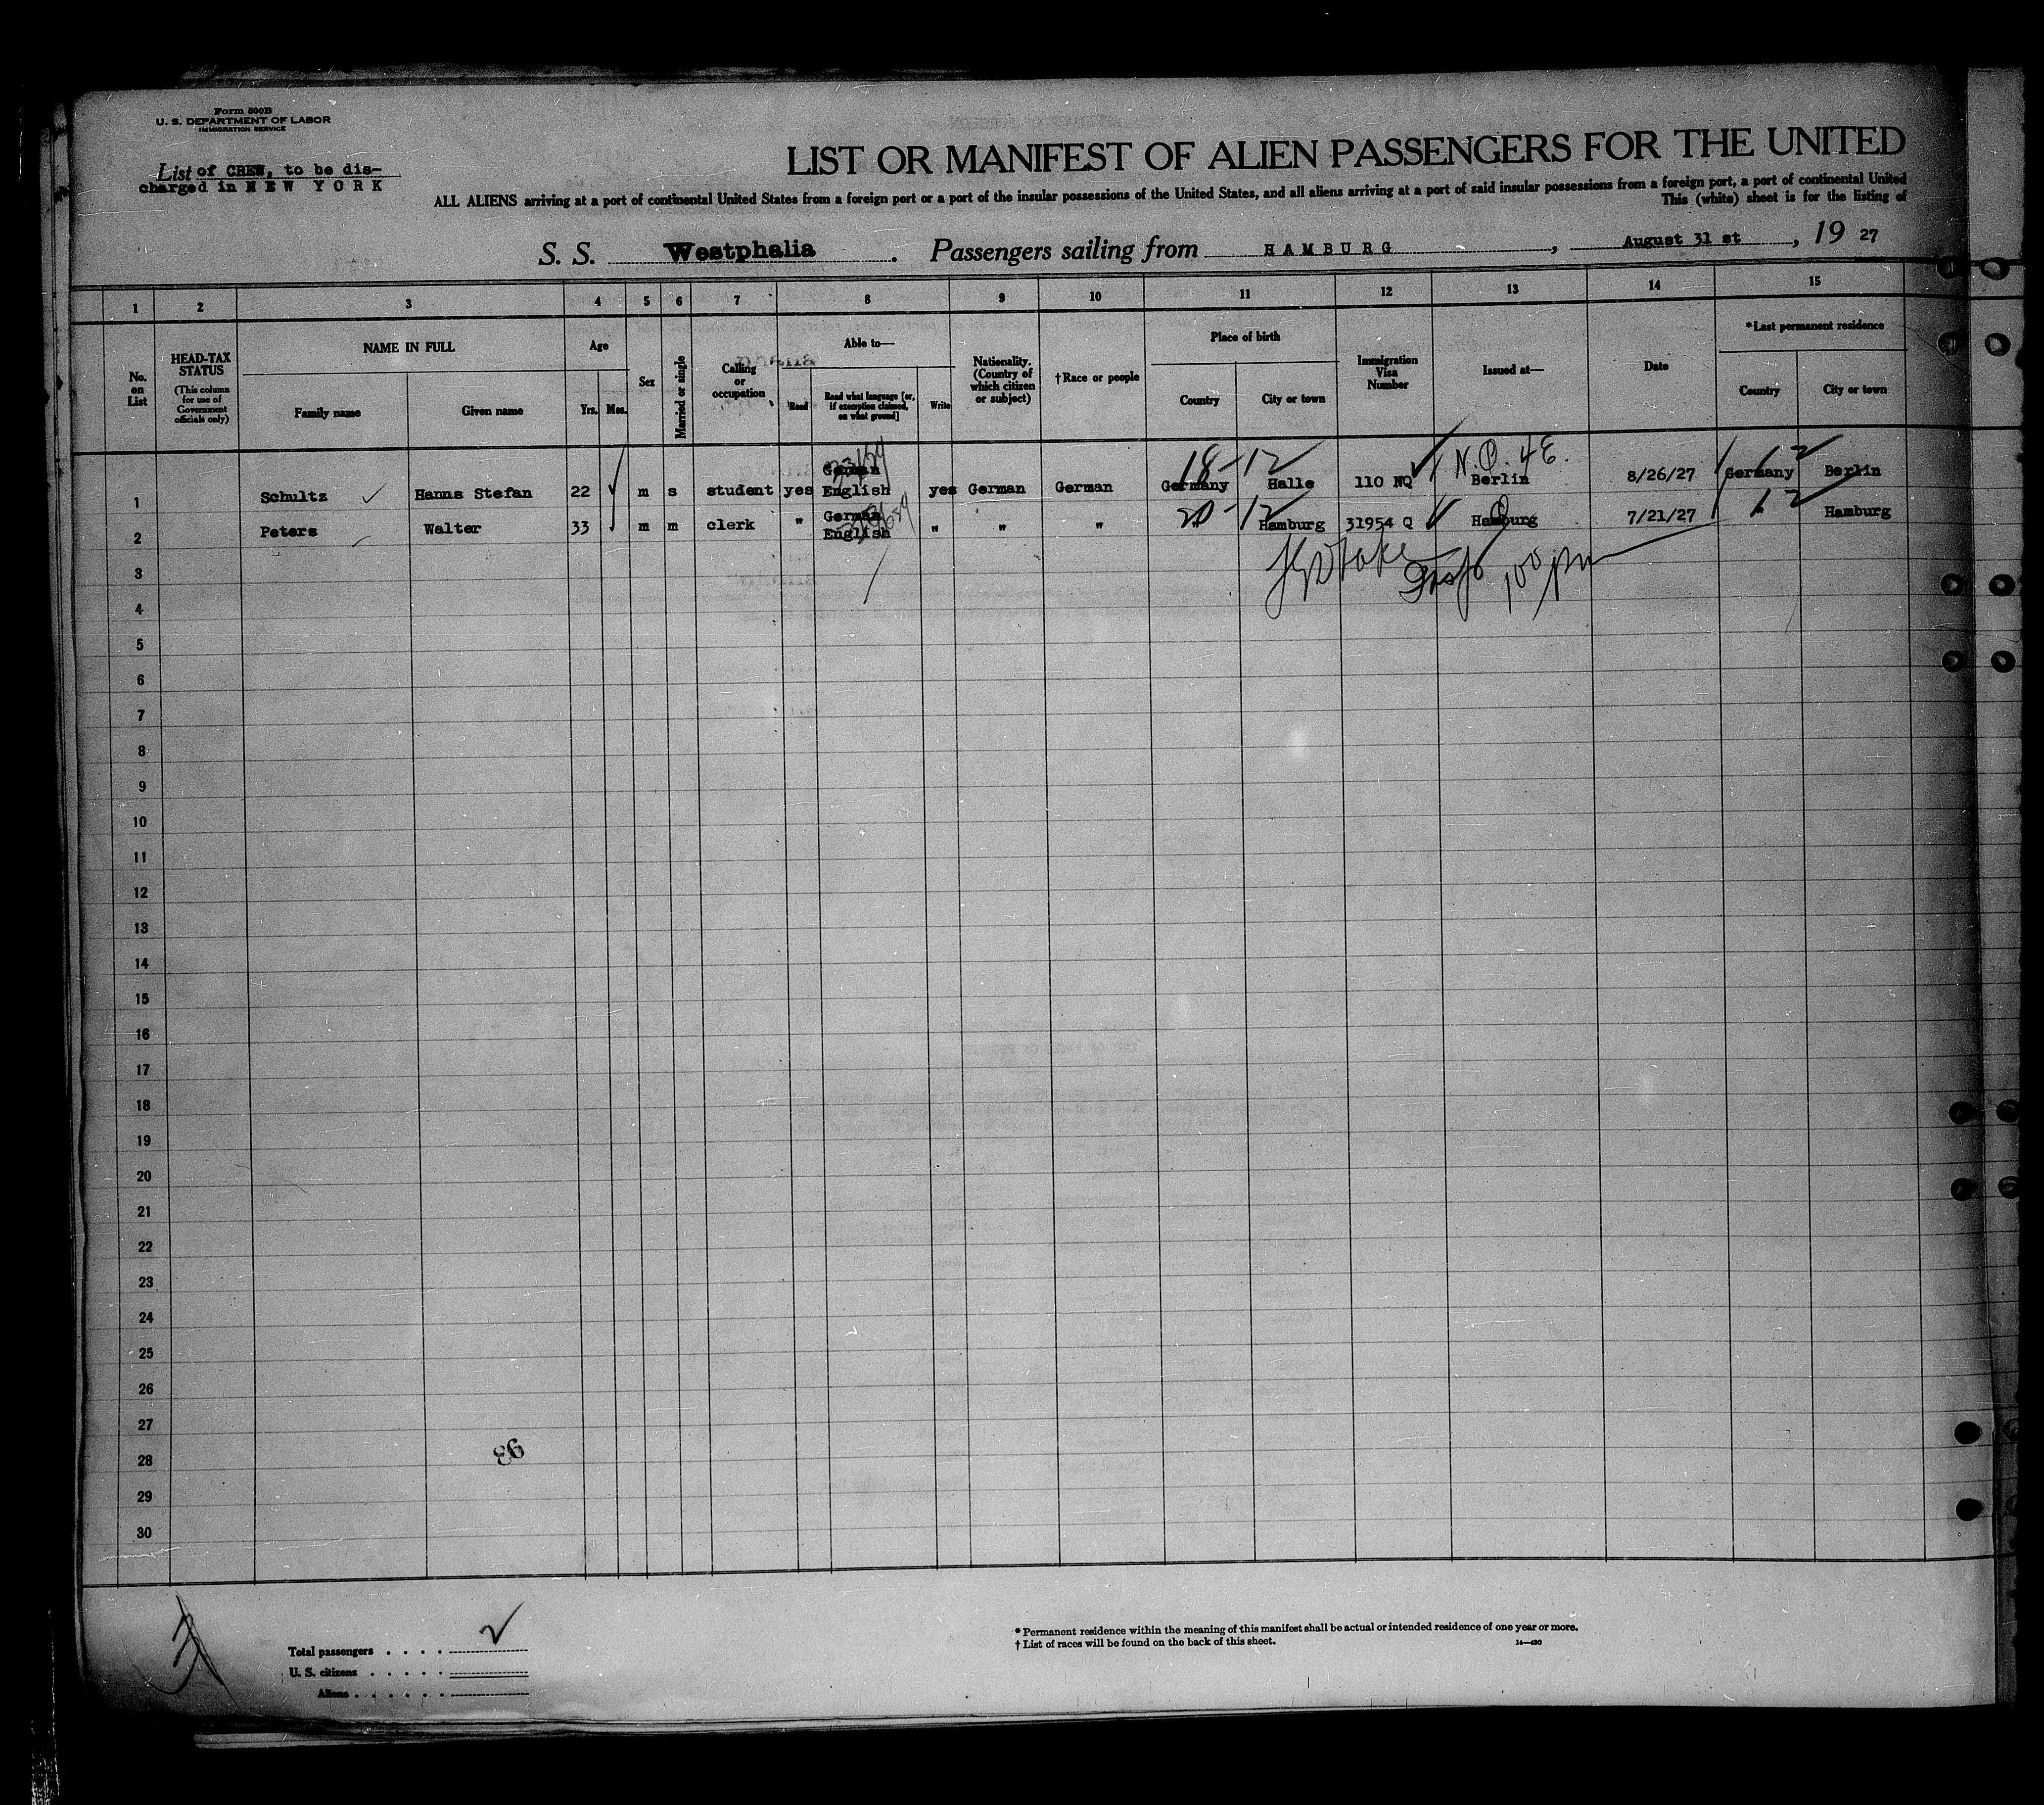 Form 500B
U. S. DEPARTMENT OF LABOR
IMMIGRATION SERVICE
List of CREW, to be dis-
charged in NEW YORK
LIST OR MANIFEST OF ALIEN PASSENGERS FOR THE UNITED
ALL ALIENS arriving at a port of continental United States from a foreign port or a port of the insular possessions of the United States, and all aliens arriving at a port of said insular possessions from a foreign port, a port of continental United
This (white) sheet is for the listing of
S. S. Westphalia . Passengers sailing from HAMBURG , August 31 st , 19 27
1 2 3 4 5 6 7 8 9 10 11 12 13 14 15
No. on List
HEAD-TAX STATUS
(This column for use of Government officials only)
NAME IN FULL
Family name Given name
Age
Yrs. Mos.
Sex
Married or single
Calling or occupation
Able to—
Read
Read what language [or, if exemption claimed, on what ground]
Write
Nationality. (Country of which citizen or subject)
†Race or people
Place of birth
Country City or town
Immigration Visa Number
Issued at—
Date
*Last permanent residence
Country City or town
18-12 N.Q. 4E.
1 Schultz Hanns Stefan 22 m s student yes German English yes German German Germany Halle 110 NQ Berlin 8/26/27 Germany Berlin
20-12
2 Peters Walter 33 m m clerk " German English " " " " Hamburg 31954 Q Hamburg 7/21/27 Hamburg
100 pm
3
4
5
6
7
8
9
10
11
12
13
14
15
16
17
18
19
20
21
22
23
24
25
26
27
28
29
30
Total passengers
U. S. citizens
Aliens
* Permanent residence within the meaning of this manifest shall be actual or intended residence of one year or more.
† List of races will be found on the back of this sheet.
14—430